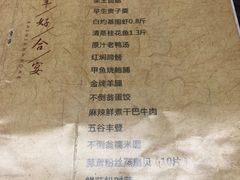 好合宴
早生贵子羹
白灼基围虾0.8斤
清蒸桂花鱼1.3斤
原汁老鸭汤
红焖蹄髈
甲鱼烧鲍脯
金牌羊腩
不倒翁蛋饺
麻辣鲜煮干巴牛肉
五谷丰登
不倒翁糯米磨
蒜茸粉丝蒸扇贝（10片）